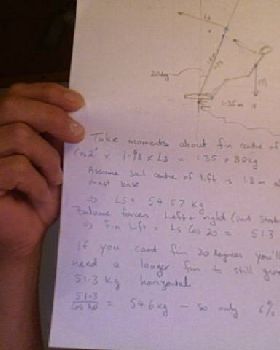 20deg
1.35m
Take moments about fin centre of
1.98 x Ls = 1.35 x 80kg
Assume sail centre of lift is 1.8 m a
mast base
=> LS = 54.57 kg
Balance forces left + right
=> Fin Lift = Ls Cos 20 = 51.3
If you cant fin 20 degrees you'll
need a longer fin to still give
51.3 kg horizontal
51.3
cos 20 = 54.6 kg - so only 6%